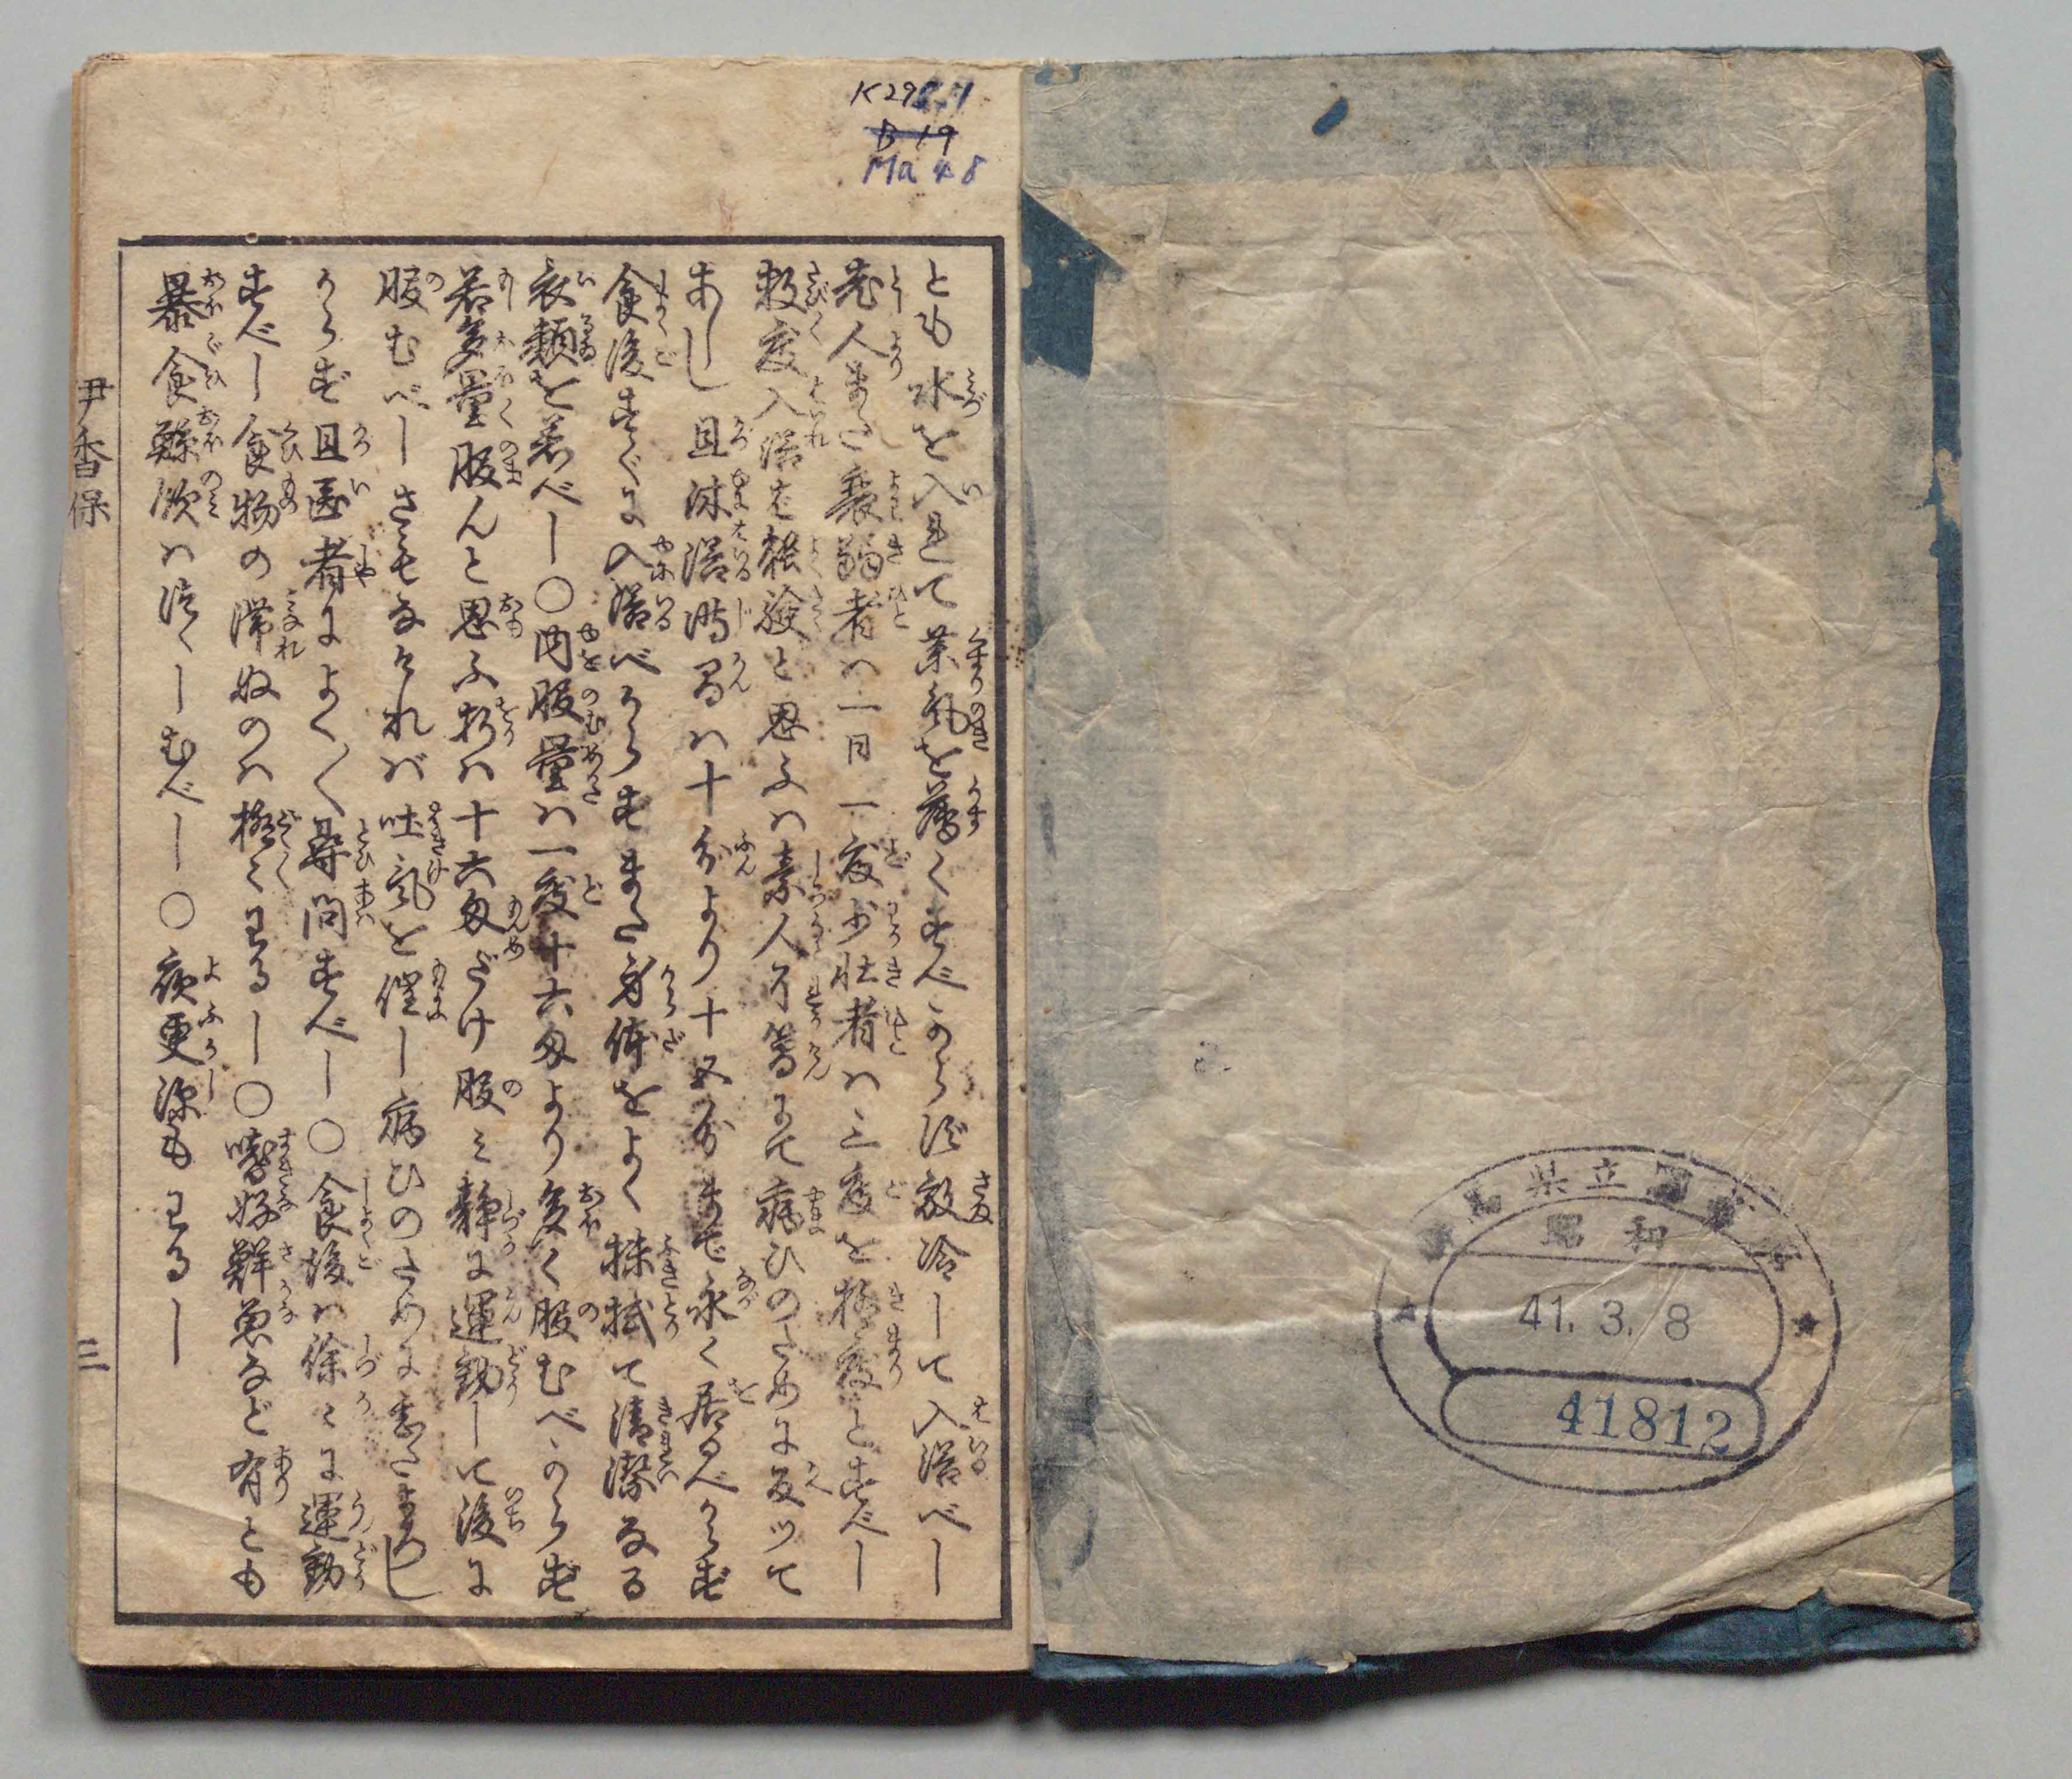 群馬県立図書館
昭和
41. 3. 8
41812
K29
B 19
Ma 48
とも水を入れて薬気を薄くすべからず放冷して入浴べし
老人また衰弱者ハ一日一度少壮者ハ三度を極度とすべし
数度入浴を経験と思ふハ素人了簡にて病ひのために反ッて
あしし且沐浴時間ハ十分より十五分まで永く居るべからず
食後すぐに入浴べからずまた身体をよく抹拭て清潔なる
衣類を着べし〇内服量ハ一度十六匁より多く服むべからず
若多量服んと思ふ折ハ十六匁だけ服ミ静に運動して後に
服むべしさもなければ吐気を催し病ひのために
からず且医者によく〱尋問すべし〇食後ハ徐々に運動
すべし食物の滞ぬのハ極々わるし〇嗜好鮮魚など有とも
暴食飲ハ慎しむべし〇夜更深もわるし
伊香保
三